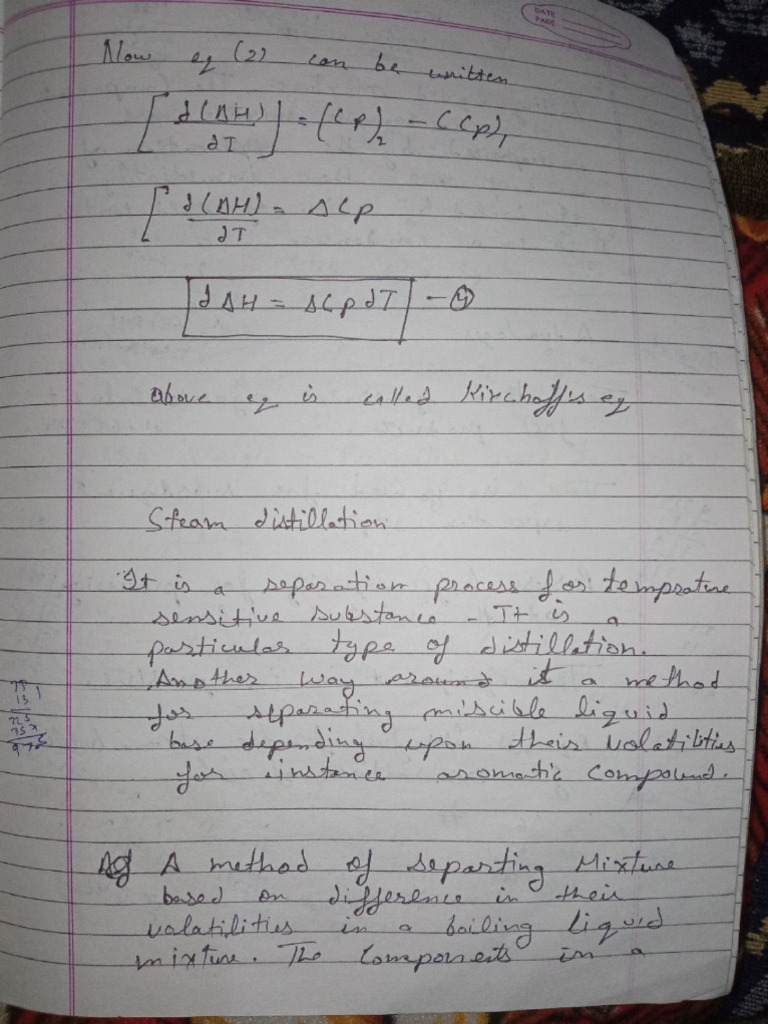 DATE
PAGE
Now eq (2) can be written
[∂(ΔH)/∂T] = (Cp)₂ - (Cp)₁
[∂(ΔH)/∂T = ΔCp
∂ΔH = ΔCp∂T - ④
above eq is called Kirchoff's eq
Steam distillation
It is a separation process for temprature
sensitive substance - It is a
particular type of distillation.
Another way around it a method
for separating miscible liquid
base depending upon their volatilities
for instance aromatic compound.
75
13
225
75x
975
A method of separting Mixture
based on difference in their
volatilities in a boiling liquid
mixture. The Components in a